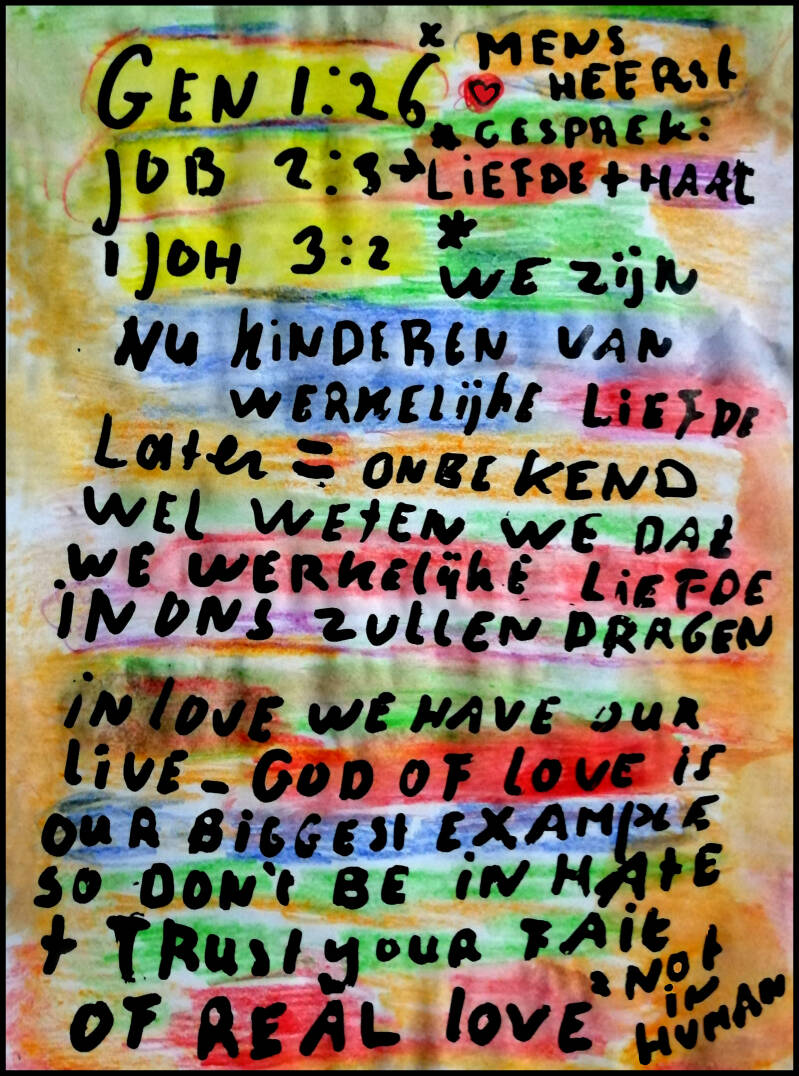 GEN 1:26 * MENS HEERSt
JOB 2:3 → * GESPREK: LIEFDE + HAAt
1 JOH 3:2 * WE ZIJN
NU KINDEREN VAN
WERKELIJKE LIEFDE
Later = ONBEKEND
WEL WETEN WE DAt
WE WERKELIJKE LIEFDE
IN ONS ZULLEN DRAGEN
IN LOVE WE HAVE OUR
LIVE - GOD OF LOVE IS
OUR BIGGEST EXAMPLE
SO DON't BE IN HAtE
+ TRUSt YOUR FAIt
OF REAL LOVE * NOt IN HUMAN